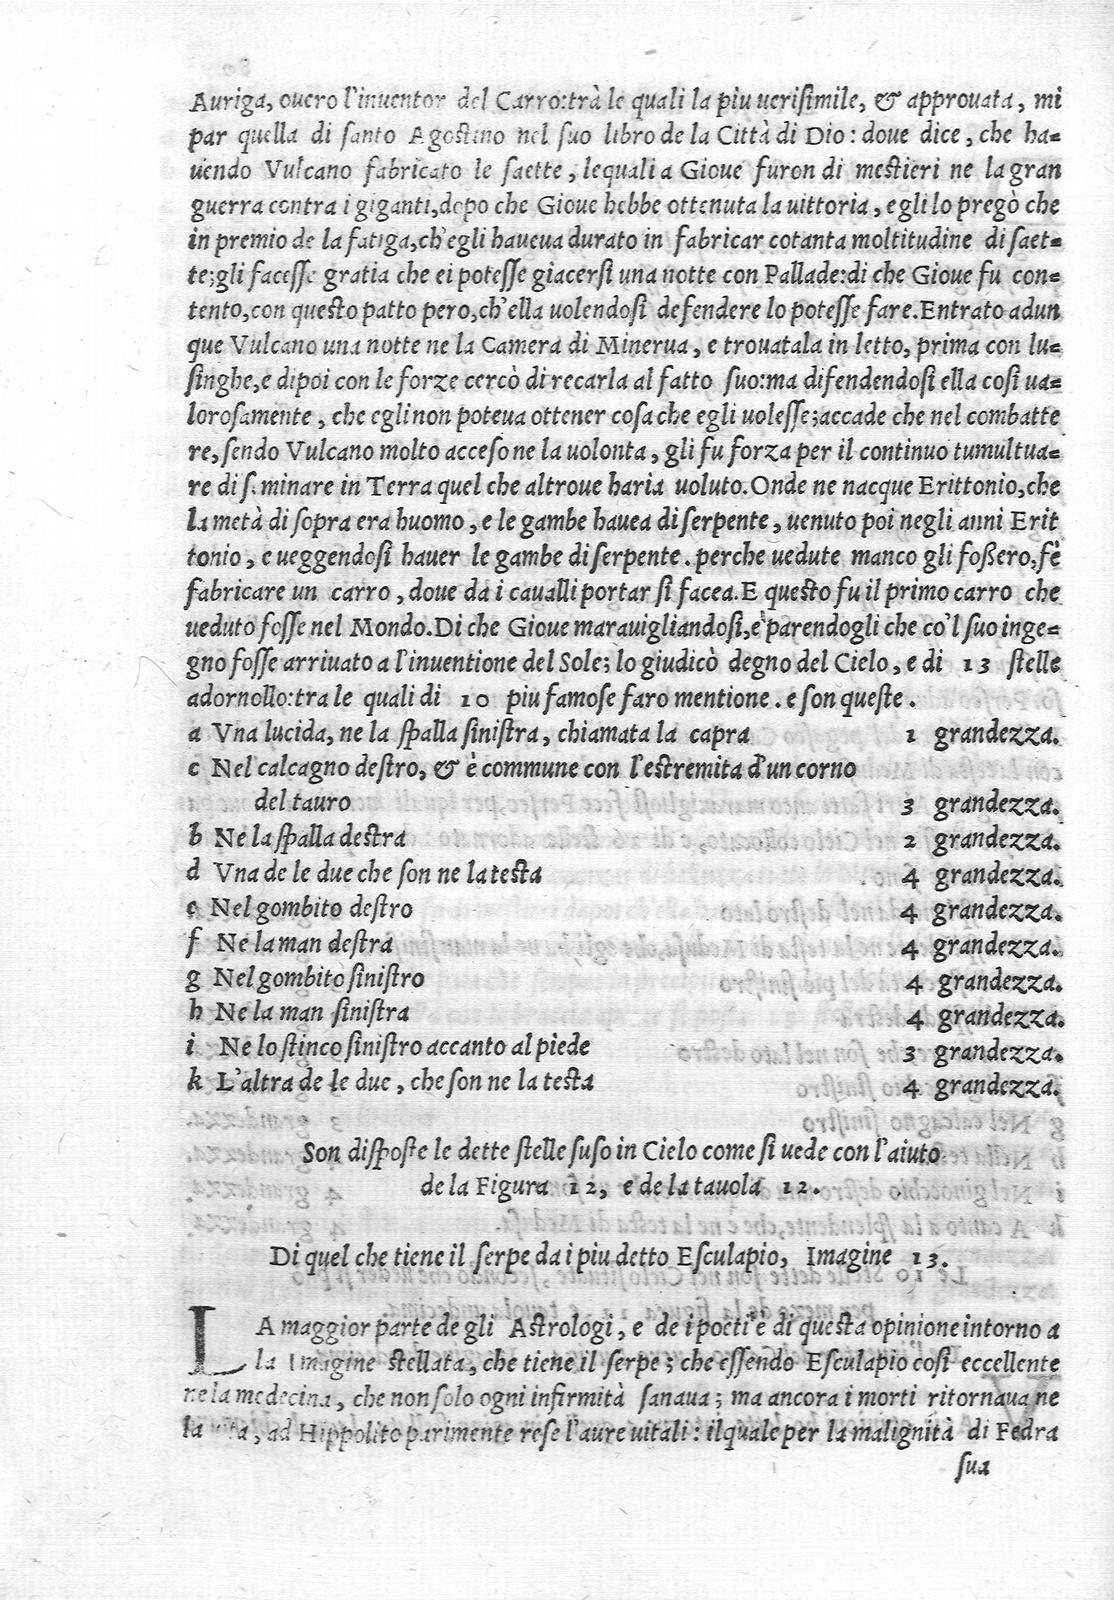 Auriga, ouero l'inuentor del Carro:trà le quali la piu uerisimile, & approuata, mi
par quella di santo Agostino nel suo libro de la Città di Dio: doue dice, che ha=
uendo Vulcano fabricato le saette, lequali a Gioue furon di mestieri ne la gran
guerra contra i giganti,dopo che Gioue hebbe ottenuta la uittoria, egli lo pregò che
in premio de la fatiga,ch'egli haueua durato in fabricar cotanta moltitudine di saet=
te;gli facesse gratia che ei potesse giacersi una notte con Pallade:di che Gioue fu con=
tento,con questo patto pero,ch'ella uolendosi defendere lo potesse fare.Entrato adun
que Vulcano una notte ne la Camera di Minerua, e trouatala in letto, prima con lu=
singhe,e dipoi con le forze cercò di recarla al fatto suo:ma difendendosi ella cosi ua=
lorosamente, che egli non poteua ottener cosa che egli uolesse;accade che nel combatte
re, sendo Vulcano molto acceso ne la uolonta, gli fu forza per il continuo tumultua=
re di seminare in Terra quel che altroue haria uoluto.Onde ne nacque Erittonio,che
la metà di sopra era huomo, e le gambe hauea di serpente, uenuto poi negli anni Erit
tonio, e ueggendosi hauer le gambe di serpente. perche uedute manco gli foßero,fè
fabricare un carro, doue da i caualli portar si facea.E questo fu il primo carro che
ueduto fosse nel Mondo.Di che Gioue marauigliandosi,e parendogli che co'l suo inge=
gno fosse arriuato a l'inuentione del Sole; lo giudicò degno del Cielo, e di 13 stelle
adornollo:tra le quali di 10 piu famose faro mentione. e son queste.
a Vna lucida, ne la spalla sinistra, chiamata la capra 1 grandezza.
c Nel calcagno destro, & è commune con l'estremita d'un corno
del tauro 3 grandezza.
b Ne la spalla destra 2 grandezza.
d Vna de le due che son ne la testa 4 grandezza.
e Nel gombito destro 4 grandezza.
f Ne la man destra 4 grandezza.
g Nel gombito sinistro 4 grandezza.
h Ne la man sinistra 4 grandezza.
i Ne lo stinco sinistro accanto al piede 3 grandezza.
k L'altra de le due, che son ne la testa 4 grandezza.
Son disposte le dette stelle suso in Cielo come si uede con l'aiuto
de la Figura 12, e de la tauola 12.
Di quel che tiene il serpe da i piu detto Esculapio, Imagine 13.
LA maggior parte de gli Astrologi, e de i poeti è di questa opinione intorno a
la Imagine stellata, che tiene il serpe; che essendo Esculapio cosi eccellente
ne la medecina, che non solo ogni infirmità sanaua; ma ancora i morti ritornaua ne
la uita, ad Hippolito parimente rese l'aure uitali: ilquale per la malignità di Fedra
sua